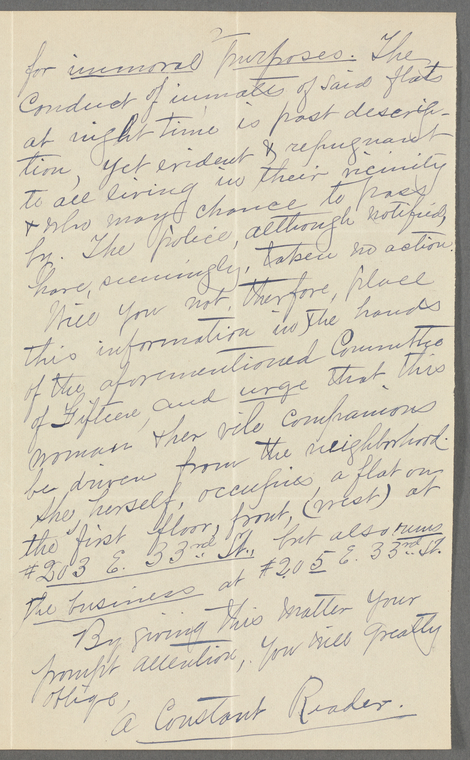 for immoral purposes. The
Conduct of inmates of said flats
at night time is past descrip-
tion, yet evident & repugnant
to all living in their vicinity
& who may chance to pass
by. The police, although notified,
have, seemingly, taken no action.
Will you not, therfore, place
this information in the hands
of the aforementioned Committee
of Fifteen, and urge that this
woman & her vile companions
be driven from the neighborhood.
She, herself, occupies a flat on
the first floor, front, (west) at
#203 E. 33rd St., but also runs
the business at #205 E. 33rd St.
By giving this matter your
prompt attention, you will greatly
oblige,
A Constant Reader.